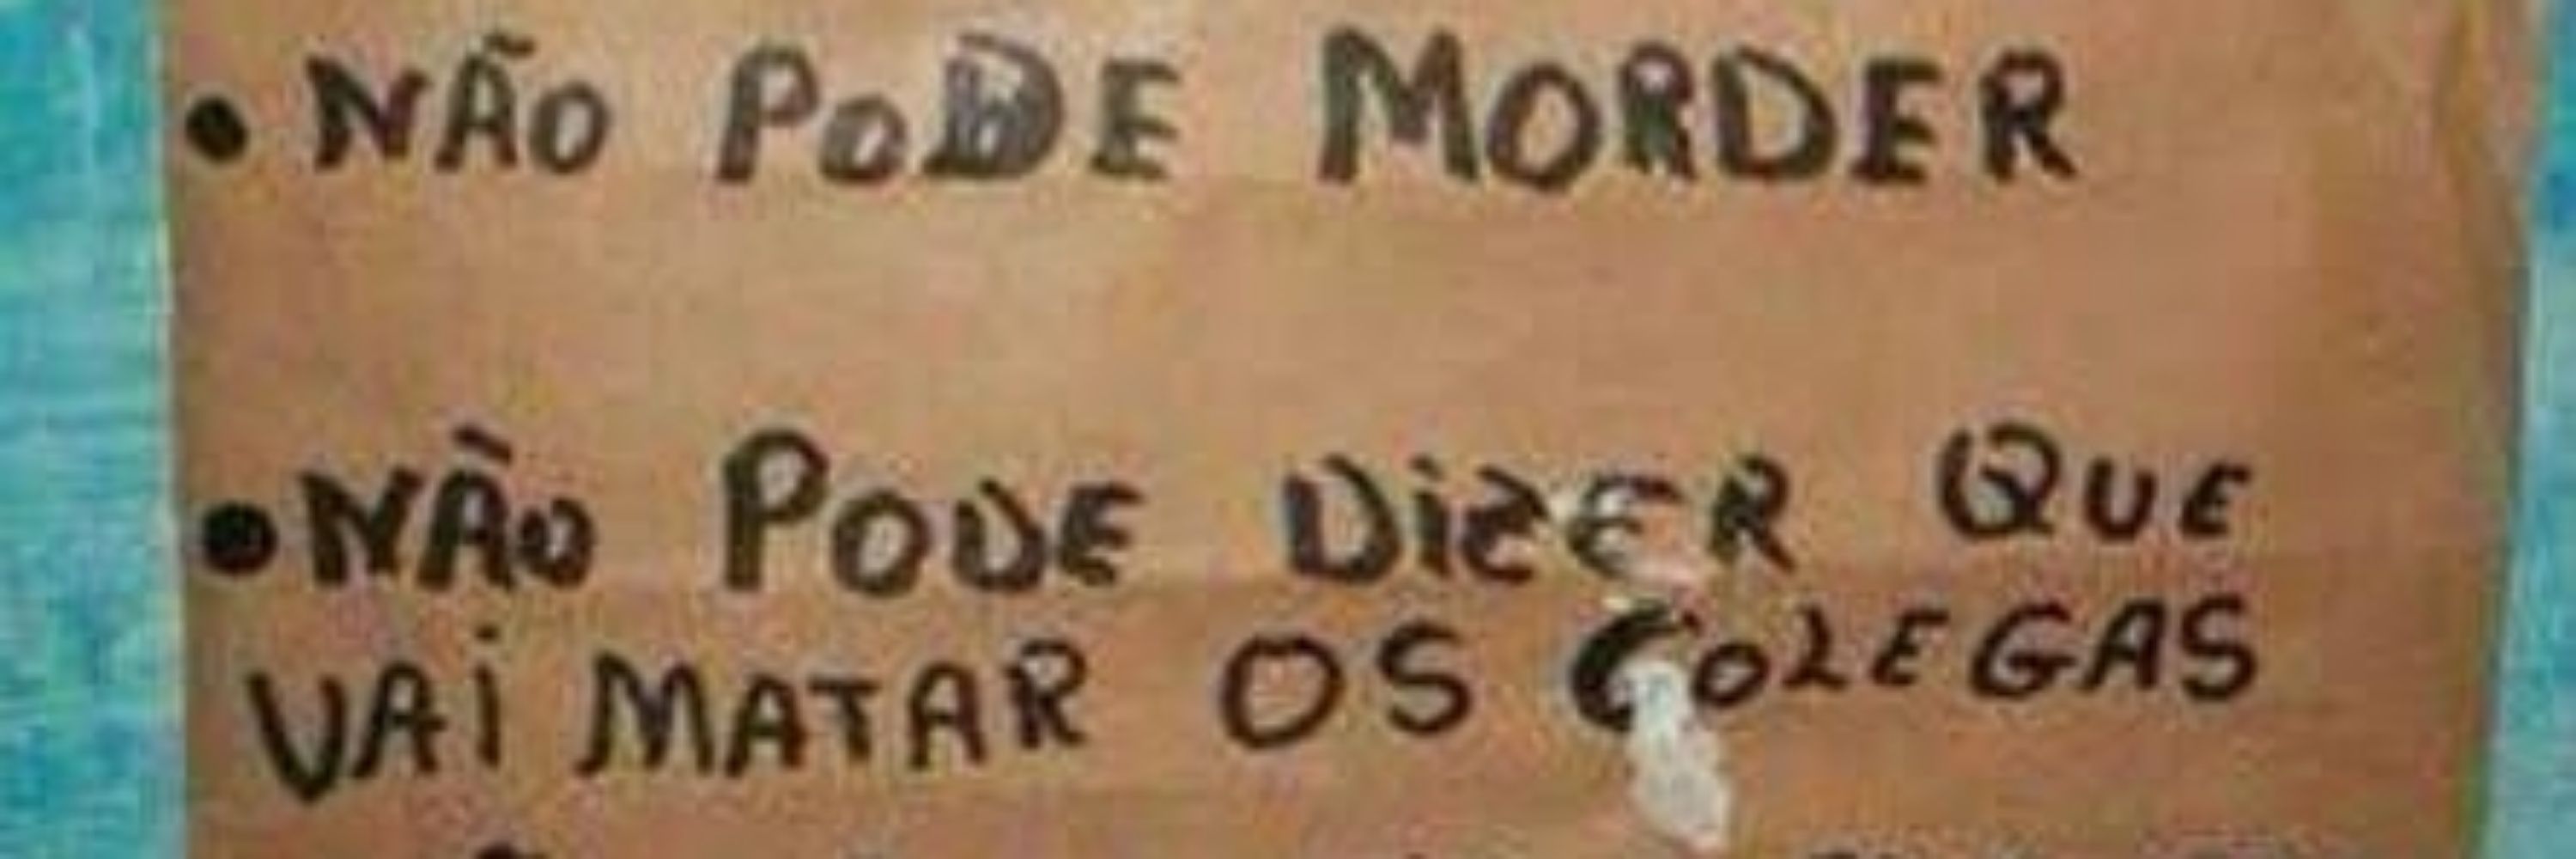 • NÃO PODE MORDER
• NÃO PODE DIZER QUE
VAI MATAR OS COLEGAS